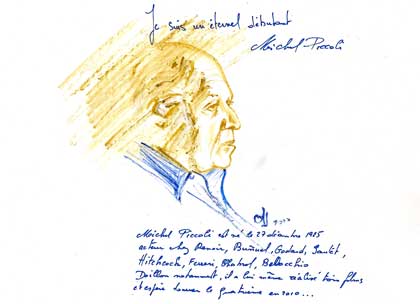 Je suis un éternel débutant
Michel Piccoli
Michel Piccoli est né le 27 décembre 1925
acteur chez Renoir, Buñuel, Godard, Sautet,
Hitchcock, Ferreri, Chabrol, Bellocchio
Doillon notamment, il a lui même réalisé trois films
et espère tourner le quatrième en 2010...